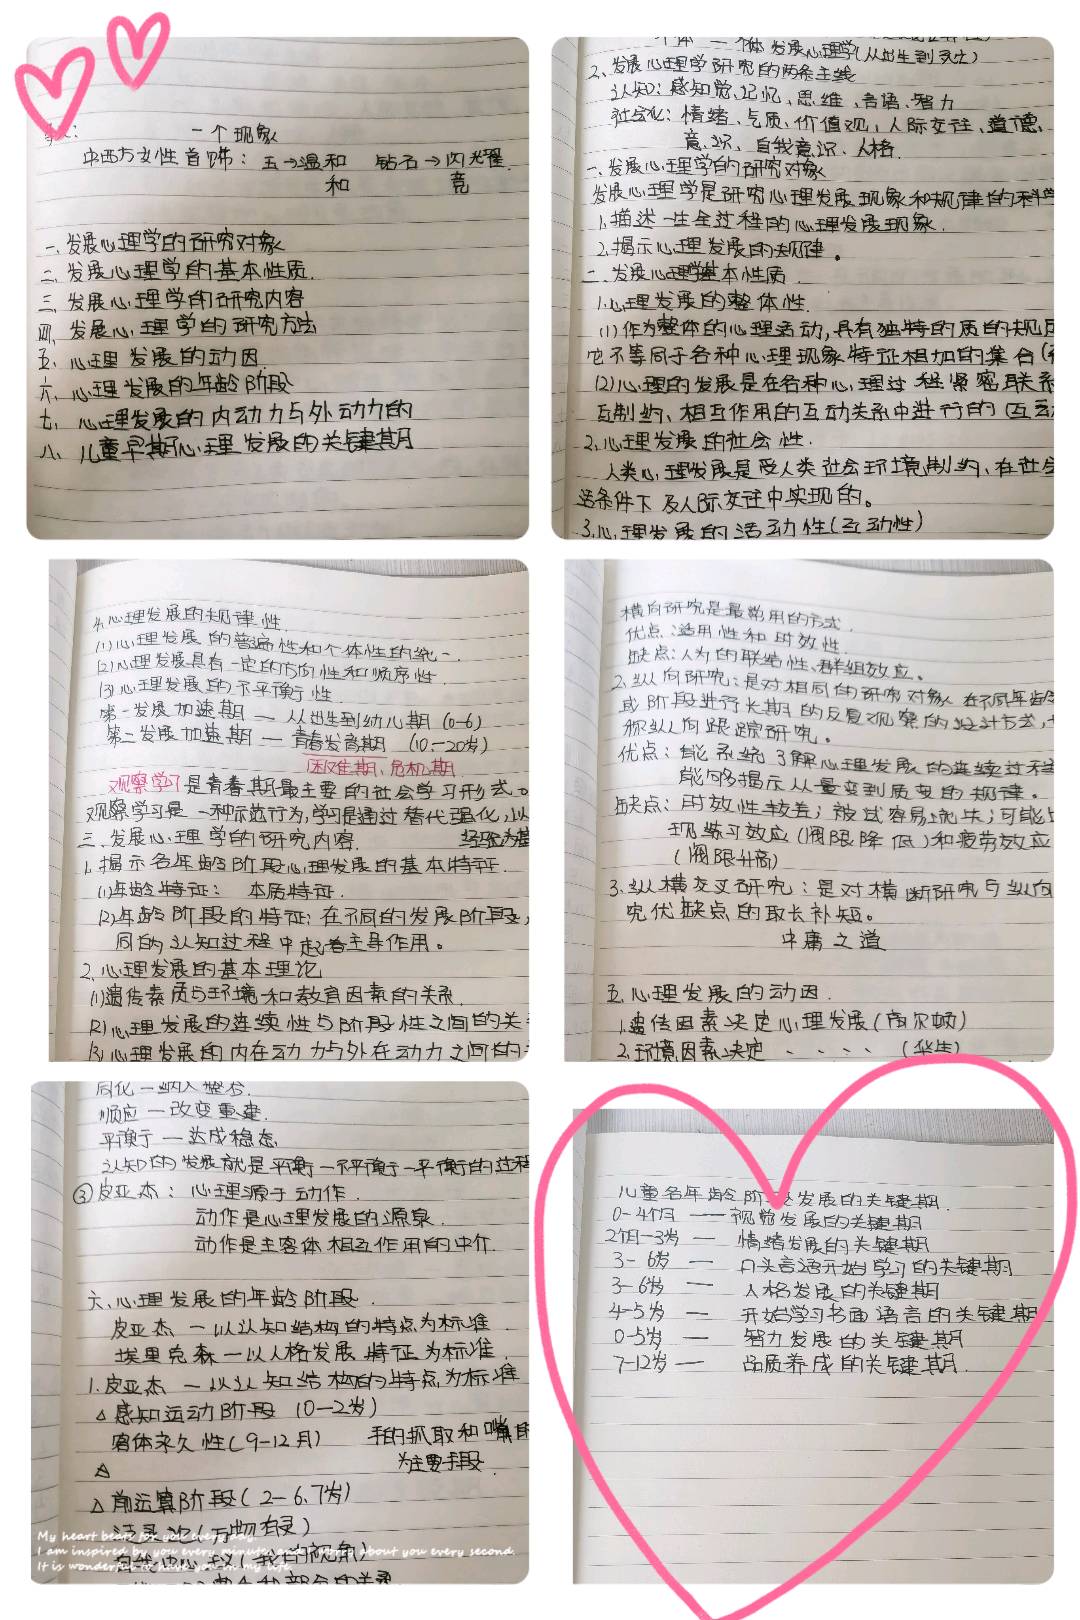 一个现象
中西方女性首饰：玉→温和 钻石→闪光耀
和 竞
一、发展心理学的研究对象
二、发展心理学的基本性质.
三、发展心理学的研究内容
四、发展心理学的研究方法
五、心理发展的动因
六、心理发展的年龄阶段
七、心理发展的内动力与外动力的
八、儿童早期心理发展的关键期
个体 — 个体发展心理学(从出生到死亡)
2、发展心理学研究的两条主线
认知：感知觉、记忆、思维、言语、智力
社会化：情绪、气质、价值观、人际交往、道德、
意识、自我意识、人格.
一、发展心理学的研究对象
发展心理学是研究心理发展现象和规律的科学
1.描述一生全过程的心理发展现象.
2.揭示心理发展的规律。
二、发展心理学基本性质
1.心理发展的整体性.
(1)作为整体的心理活动,具有独特的质的规
它不等同于各种心理现象特征相加的集合
(2)心理的发展是在各种心理过程紧密联系
互制约、相互作用的互动关系中进行的
2.心理发展的社会性.
人类心理发展是受人类社会环境制约,在社会
活条件下及人际交往中实现的。
3.心理发展的活动性(互动性)
4.心理发展的规律性
(1)心理发展的普遍性和个体性的统一.
(2)心理发展具有一定的方向性和顺序性.
(3)心理发展的不平衡性
第一发展加速期 — 从出生到幼儿期 (0-6)
第二发展加速期 — 青春发育期 (10-20岁)
困难期、危机期
观察学习是青春期最主要的社会学习形式。
观察学习是一种示范行为,学习是通过替代强化,以
三、发展心理学的研究内容.
1.揭示各年龄阶段心理发展的基本特征.
(1)年龄特征： 本质特征.
(2)年龄阶段的特征：在不同的发展阶段,
同的认知过程中起着主导作用。
2.心理发展的基本理论
(1)遗传素质与环境和教育因素的关系.
(2)心理发展的连续性与阶段性之间的关
(3)心理发展的内在动力与外在动力之间的
横向研究是最常用的方式.
优点：适用性和时效性.
缺点：人为的联结性、群组效应。
2.纵向研究：是对相同的研究对象在不同年龄
或阶段进行长期的反复观察的设计方式,
称纵向跟踪研究。
优点：能系统了解心理发展的连续过程
能够揭示从量变到质变的规律。
缺点：时效性较差；被试容易流失；可能
现练习效应(阈限降低)和疲劳效应
(阈限升高)
3.纵横交叉研究：是对横断研究与纵向
究优缺点的取长补短。
中庸之道
五.心理发展的动因.
1.遗传因素决定心理发展(高尔顿)
2.环境因素决定、、、、(华生)
同化—纳入整合.
顺应—改变重建.
平衡—达成稳态.
认知的发展就是平衡—不平衡—平衡的过程
③皮亚杰：心理源于动作.
动作是心理发展的源泉.
动作是主客体相互作用的中介.
六.心理发展的年龄阶段.
皮亚杰—以认知结构的特点为标准.
埃里克森—以人格发展特征为标准.
1.皮亚杰—以认知结构的特点为标准
△感知运动阶段 (0-2岁)
客体永久性(9-12月) 手的抓取和嘴的
△ 为主要手段.
△前运算阶段(2-6、7岁)
泛灵论(万物有灵)
自我中心主义(我的视角)
My heart beats for you every day.
I am inspired by you every minute, and I worry about you every second.
It is wonderful to have you in my life.
儿童各年龄阶段发展的关键期.
0-4个月 — 视觉发展的关键期
2个月-3岁 — 情绪发展的关键期
3-6岁 — 口头言语开始学习的关键期
3-6岁 — 人格发展的关键期
4-5岁 — 开始学习书面语言的关键期
0-5岁 — 智力发展的关键期
7-12岁 — 品质养成的关键期.